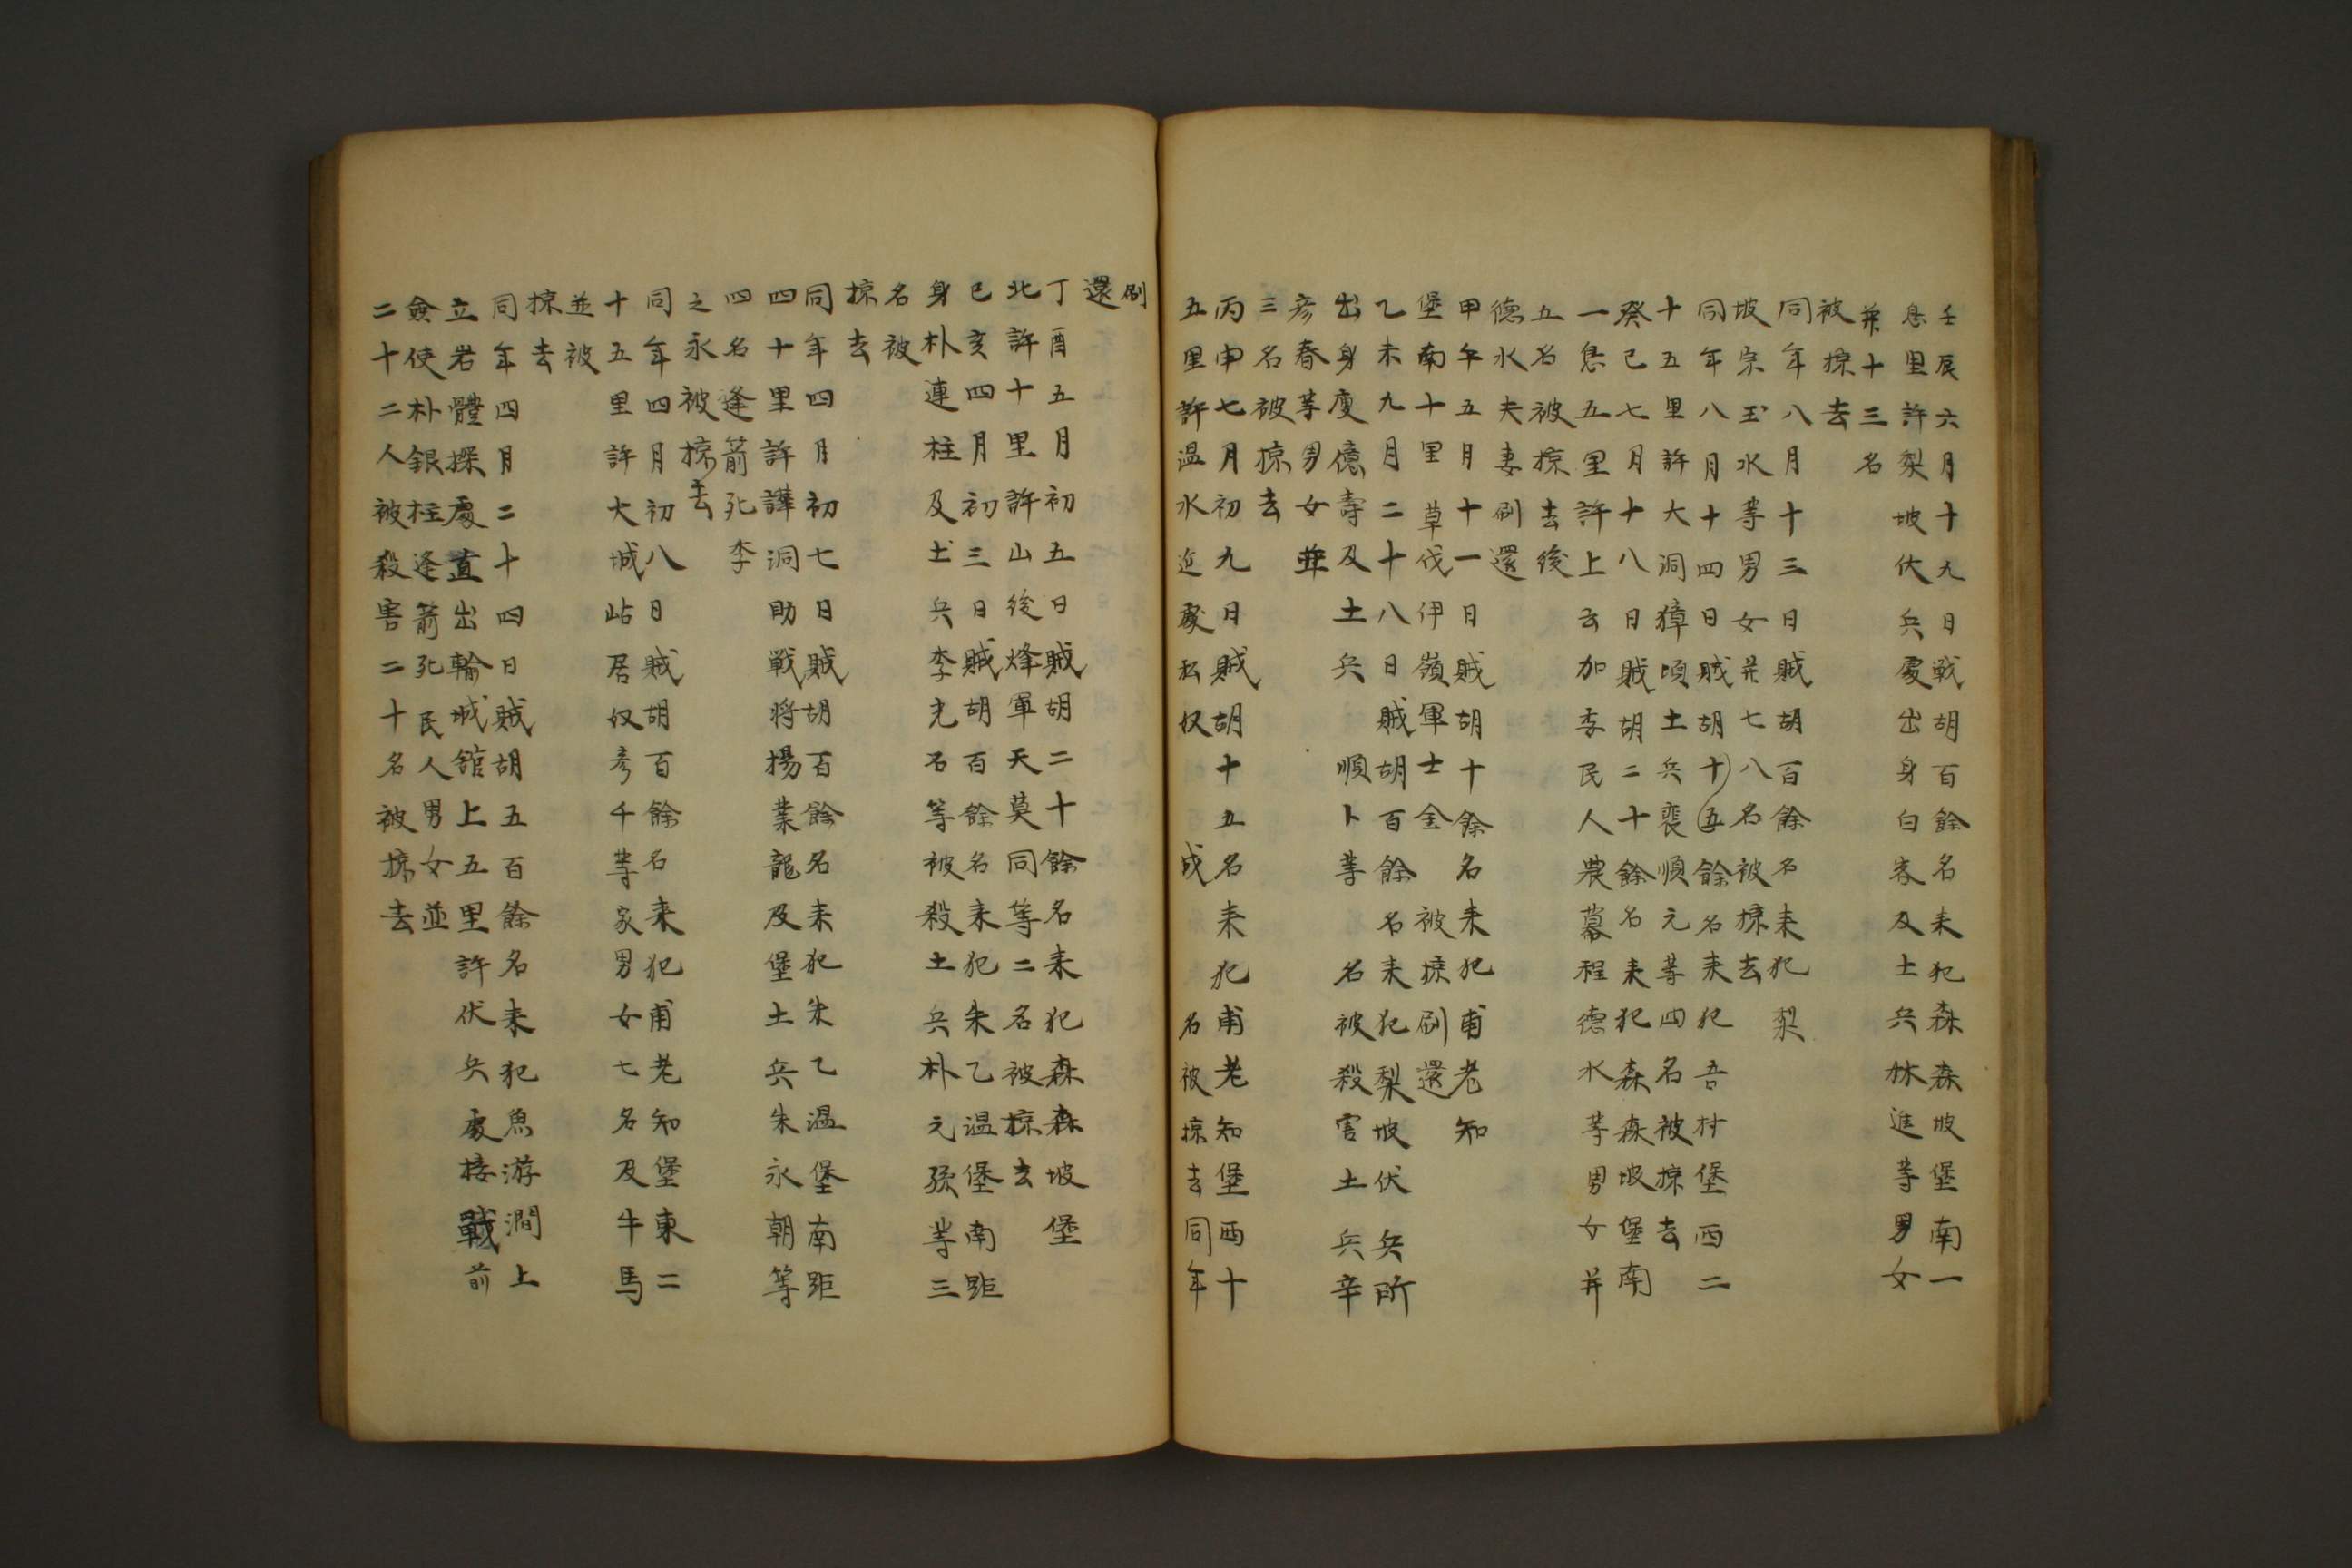 壬辰六月十九日戰胡百餘名耒犯森森坡堡南一
息里許梨坡伏兵處出身白岺及土兵林進等男女
并十三名
被掠去
同年八月十三日賊胡百餘名耒犯梨
坡宗玉水等男女并七八名被掠去
同年八月十四日賊胡十五餘名耒犯吾村堡西二
十五里許大洞獐項土兵裴順元等四名被掠去
癸巳七月十八日賊胡二十餘名耒犯森森坡堡南
一息五里許上云加委民人農幕程德水等男女并
五名被掠去後
德水夫妻刷還
甲午五月十一日賊胡十餘名耒犯甫老知
堡南十里草伐伊嶺軍士金被掠刷還
乙未九月二十八日賊胡百餘名耒犯梨坡伏兵所
出身廋億壽及土兵順卜等名被殺害土兵辛
彦春等男女並
三名被掠去
丙申七月初九日賊胡十五名耒犯甫老知堡西十
五里許温水近處私奴成名被掠去同年
刷
還
丁酉五月初五日賊胡二十餘名耒犯森森坡堡
北許十里許山後烽軍天莫同等二名被掠去
已亥四月初三日賊胡百餘名耒犯朱乙温堡南距
身朴連柱及土兵李光石等被殺土兵朴元孫等三
名被
掠去
同年四月初七日賊胡百餘名耒犯朱乙温堡南距
四十里許譁洞助戰将楊業龍及堡土兵朱永朝等
四名逢箭死李
之永被掠去
同年四月初八日賊胡百餘名耒犯甫老知堡東二
十五里許大城岾居奴彥千等家男女七名及牛馬
並被
掠去
同年四月二十四日賊胡五百餘名耒犯魚游澗上
立岩體探處直出輸城舘上五里許伏兵處接戰前
僉使朴銀柱逢箭死民人男女並
二十二人被殺害二十名被掠去